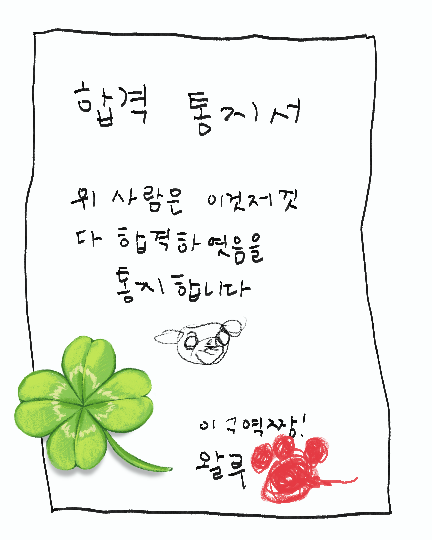 합격 통지서
위 사람은 이것저것
다 합격하였음을
통지 합니다
이구역짱!
왈루